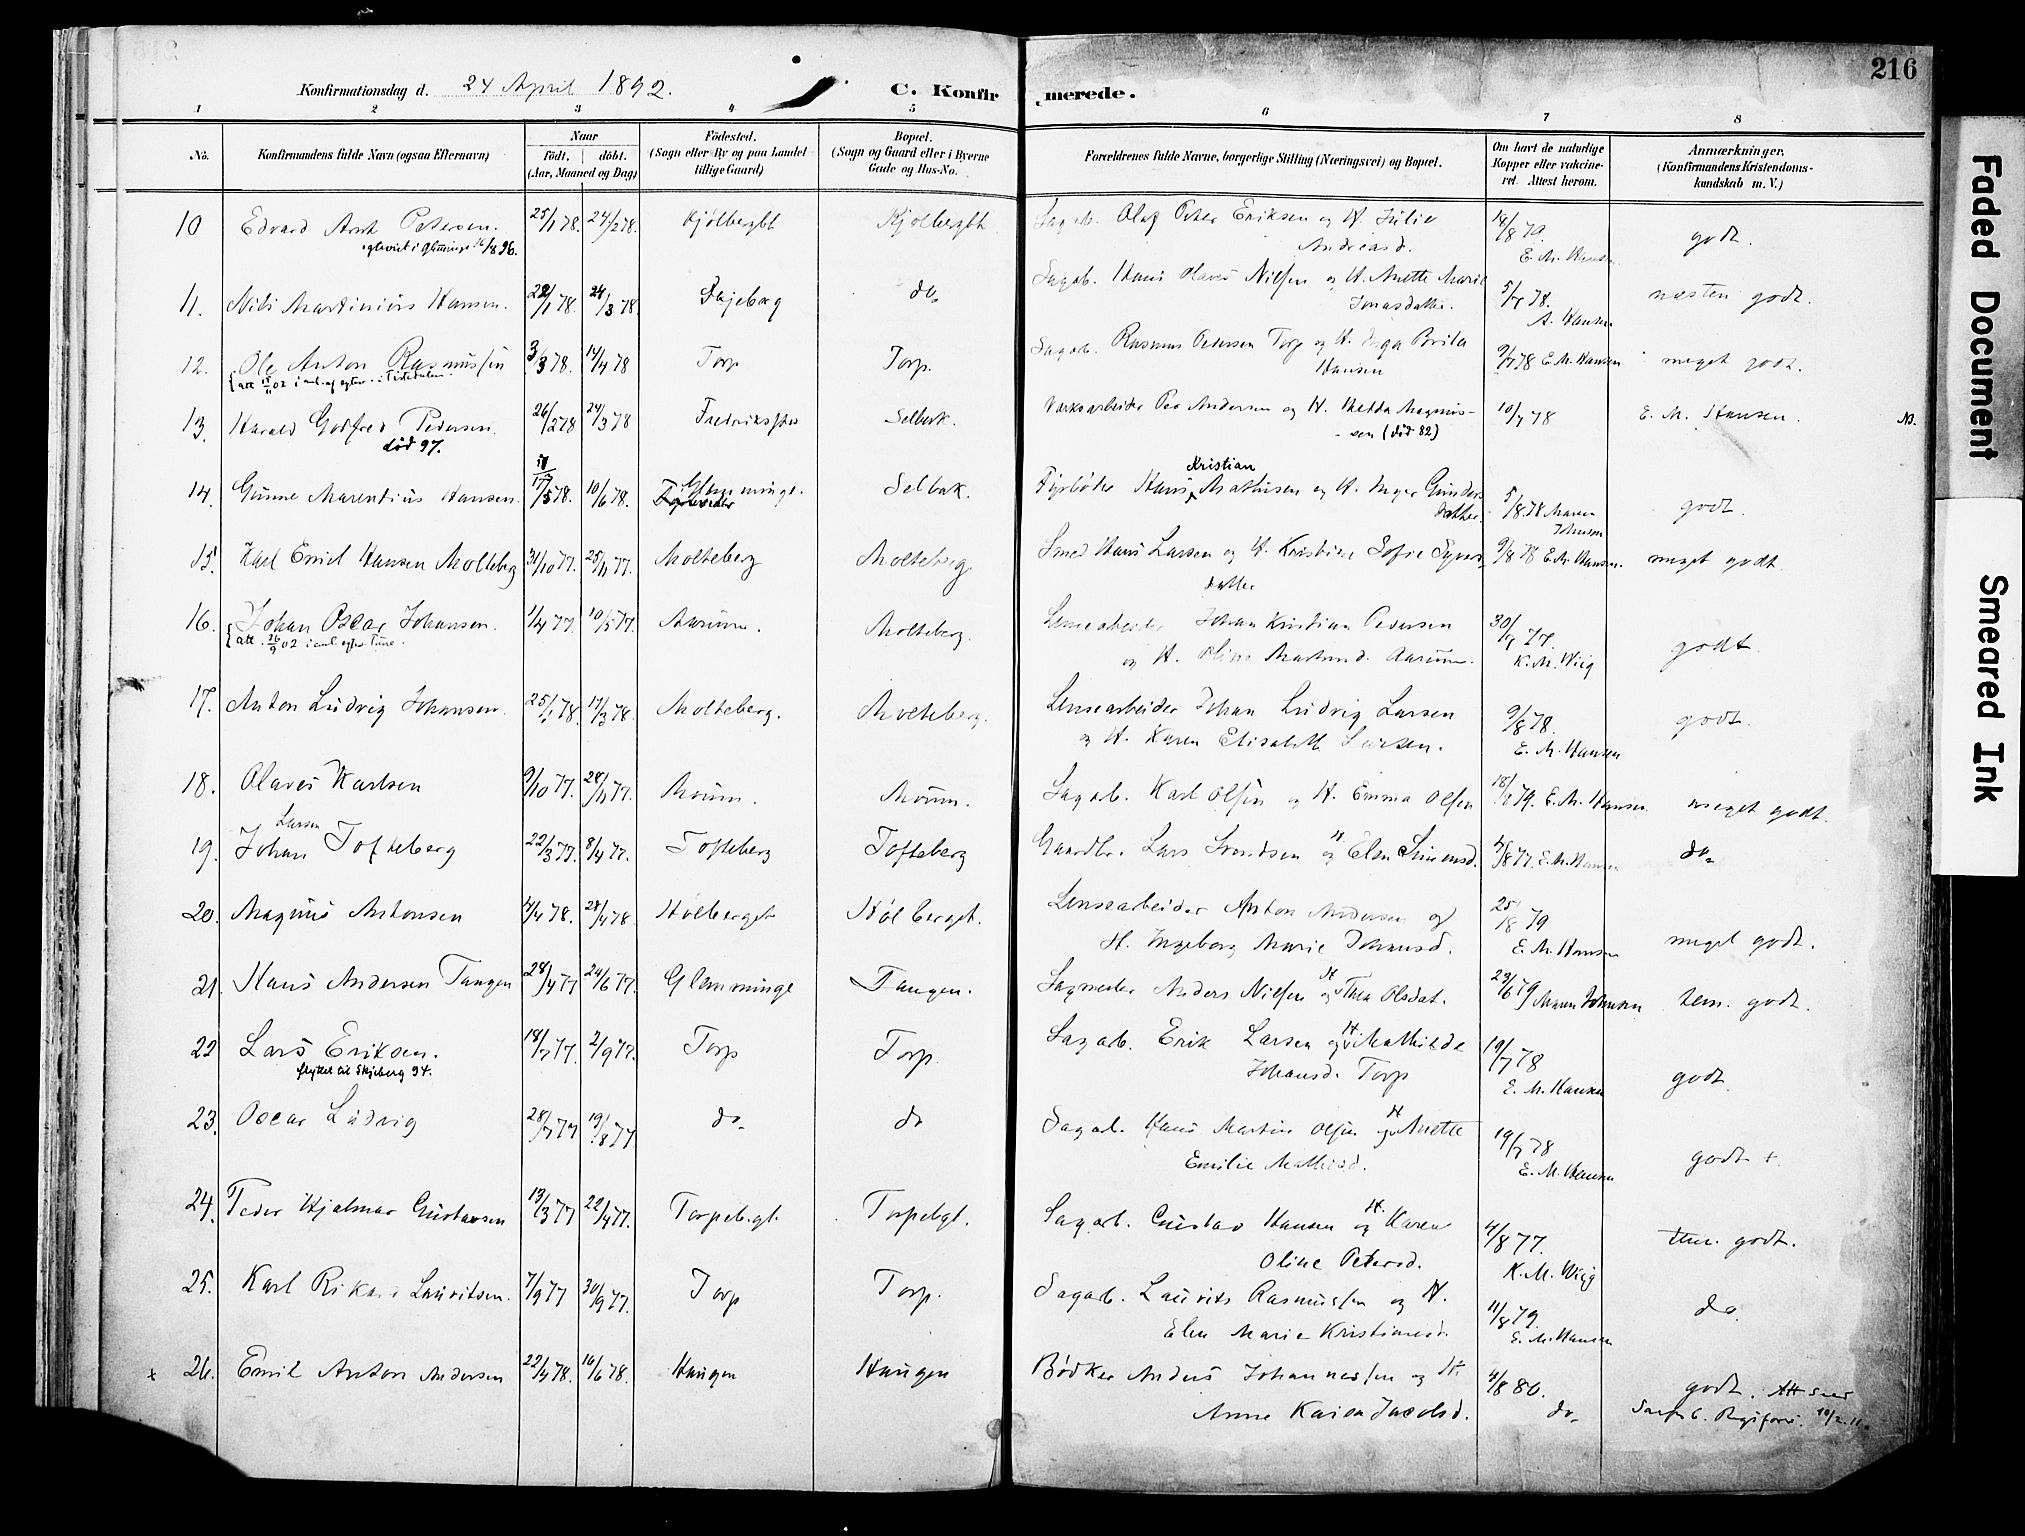 216
Faded Document
Smeared Ink
Konfirmationsdag d. 24 April 1892. C. Konfirmerede.
1 2 3 4 5 6 7 8
No. Konfirmandens fulde Navn (ogsaa Efternavn) Naar født. døbt. (Aar, Maaned og Dag) Fødested. (Sogn eller By og paa Landet tillige Gaard) Bopæl. (Sogn og Gaard eller i Byerne Gade og Hus-No. Forældrenes fulde Navne, borgerlige Stilling (Næringsvei) og Bopæl. Om havt de naturlige Kopper eller vakcineret. Attest herom. Anmærkninger. (Konfirmandens Kristendomskundskab m. V.)
10 Edvard Arnt Petersen. 25/1 78. 24/2 78. Kjølbergbt Kjølbergbt Sagarb. Olaf Peter Eriksen og H. Julie
Andreasd. 14/8 79. E. M. Hansen godt.
11. Nils Martinius Hansen. 22/1 78. 24/3 78. Skjeberg do. Sagarb. Hans Olaves Nilsen og H. Anette Marie
Jonasdatter. 5/7 78. A. Hansen næsten godt.
12. Ole Anton Rasmussen 3/3 78. 14/4 78 Torp Torp. Sagarb. Rasmus Pedersen Torp og H. Inga Brita
Hansen 9/7 78 E. M. Hansen meget godt.
13. Harald Godfred Pedersen. 26/2 78 24/3 78 Fredrikshald Selbak. Værksarbeider Peo Andersen og H. Hedda Magnus-
død 97. -sen (død 82) 10/7 78 E. M. Hansen.
14. Gunne Marentius Hansen. 17/5 78. 10/6 78. Glemminge. Selbak. Fyrbøter Hans Kristian Mathisen og H. Inger Gunders
datter. 5/8. 78 Maren Johnsen godt.
15. Karl Emil Hansen Molteberg 31/10 77. 25/11 77. Molteberg Molteberg Smed Hans Larsen og H. Kristine Sofie Syvers
datter 9/8 78 E. M. Hansen. meget godt.
16. Johan Oscar Johansen. 1/4 77. 10/5 77. Aarum. Molteberg Lensearbeider Johan Kristian Pedersen
og H. Oline Mathisd. Aarum. K. M. Wiig godt.
17. Anton Ludvig Johansen. 25/1 78. 17/3 78. Molteberg. Molteberg. Lensearbeider Johan Ludvig Larsen
og H. Karen Elisabeth Larsen. 9/8 78. E. M. Hansen godt.
18. Olaves Karlsen 9/10 77. 28/11 77. Moum. Moum. Sagarb. Karl Olsen og H. Emma Olsen E. M. Hansen meget godt.
19. Johan Larsen Tofteberg 22/3 77. 8/4 77. Tofteberg Tofteberg Gaardbr. Lars Svendsen og H Elen Simensd. E. M. Hansen do.
20. Magnus Antonsen 4/4 78. 28/4 78. Hølberget Hølberget. Lensearbeider Anton Andersen og
H. Ingeborg Marie Johansd. 25/8 79 E. M. Hansen meget godt.
21. Hans Andersen Tangen 28/4 77 24/6 77. Glemminge Tangen. Sagmester Anders Nilsen og H Thea Olsdat. 23/6 79 Maren Johnsen tem. godt.
22 Lars Eriksen. 18/7 77. 2/9 77. Torp Torp. Sagarb. Erik Larsen og H. Mathilde
flyttet til Skjeberg 94. Johansd. Torp 19/7 78 E. M. Hansen godt.
23. Oscar Ludvig 28/7 77 19/8 77 do. do Sagarb. Hans Martin Olsen og H Anette
Emilie Mathisd. 19/7 78 E. M. Hansen godt +
24. Peder Hjalmar Gustavsen 13/3 77 22/4 77. Torpebgt. Torpebgt. Sagarb. Gustav Hansen og H. Karen
Oline Petersd. 4/8 77. K. M. Wiig tem. godt.
25. Karl Rikard Lauritsen. 7/9 77 30/9 77. Torp Torp. Sagarb. Laurits Rasmussen og H.
Elen Marie Kristiansd. 11/8 79. E. M. Hansen do.
+ 26. Emil Anton Andersen 22/4 78. 16/6 78. Haugen Haugen Bødker Anders Johannessen og H.
Anne Kaisa Jacobsd. 4/8 80. do. godt.